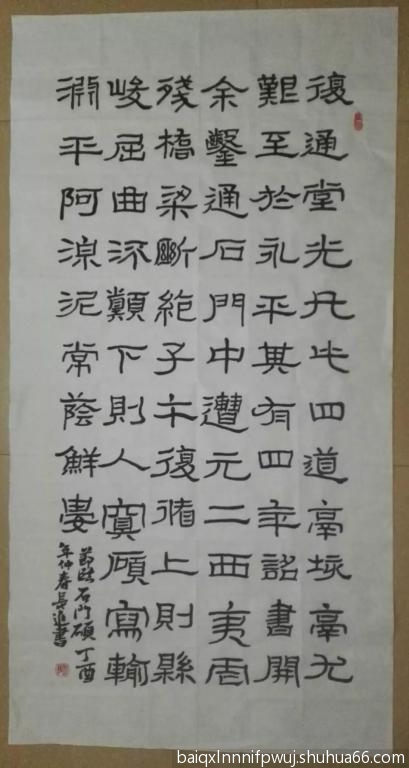 復通堂光凡此四道鬲垓鬲尤
艱至於永平其有四年詔書開
余鑿通石門中遭元二西夷虐
殘橋梁斷絶子午復循上則縣
峻屈曲流顛下則入冥傾寫輸
淵平阿湶泥常蔭鮮晏
節臨石門頌丁酉
年仲春長進書
baiqxlnnnifpwuj.shuhua66.com